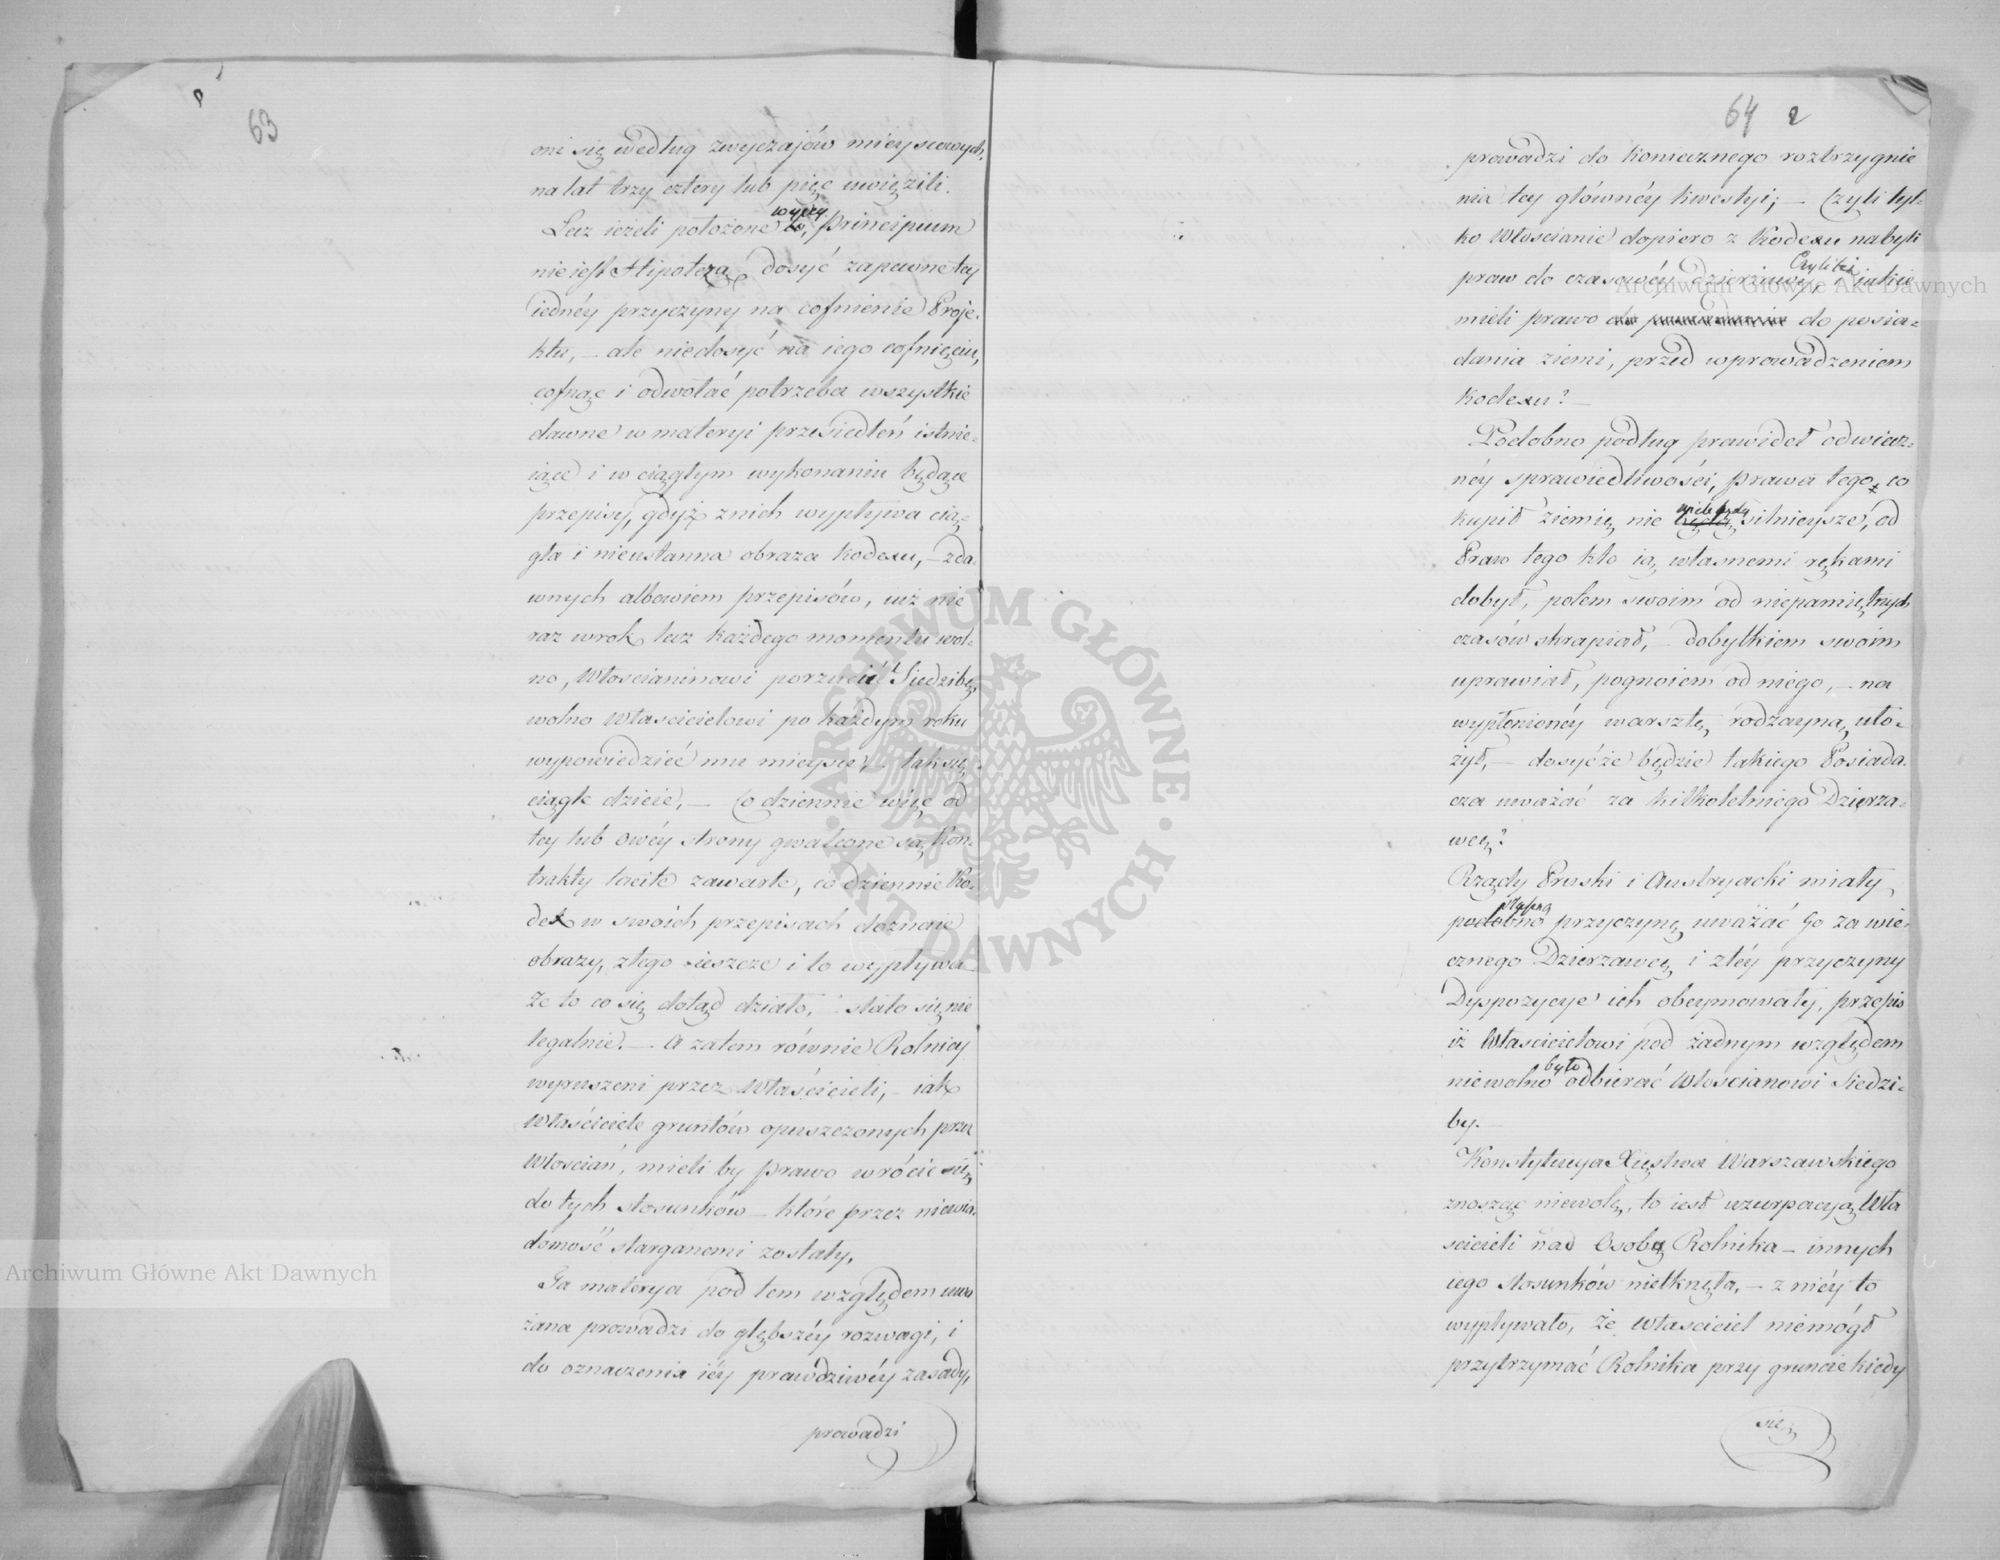 63
oni się według zwyczajów mieyscowych,
na lat trzy cztery lub pięć uwięzili.
wyżey
Lecz ieżeli położone to, principium
nie iest Hipotezą, dosyć zapewne tey
iednéy przyczyny na cofnienie Proje-
ktu, – ale niedosyć na iego cofnięciu,
cofnąć i odwołać potrzeba wszystkie
dawne w materyi przesiedleń istnie-
iące i w ciągłym wykonaniu będące
przepisy, gdyż z nich wypływa cią-
gła i nieustanna obraza Kodexu, – z da-
wnych albowiem przepisów, już nie
raz w rok lecz każdego momentu wol-
no, Włościaninowi porzucić Siedzibę,
wolno właścicielowi po każdym roku
wypowiedzieć mu mieysce, – tak się
ciągle dzieie, – Codziennie więc od
tey lub owéy strony gwałcone są Kon-
trakty tacite zawarte, codziennie Ko-
dex w swoich przepisach doznaie
obrazy, z tego ieszcze i to wypływa
Że to co się dotąd działo, – stało się nie
legalnie. – A zatem równie Rolnicy
wyruszeni przez Właścicieli, – iak
Właściciele gruntów opuszczonych przez
Włościan, mieli by prawo wrócić się
do tych stosunków – które przez niewia-
domość starganemi zostały.
Ta materya pod tem względem uwa
żana prowadzi do głębszéy rozwagi, i
do oznaczenia iéy prawdziwéy zasady,
prowadzi
64 2
prowadzi do koniecznego roztrzygnie
nia tey głównéy kwestyi; – Czyli tyl-
ko Włościanie dopiero z Kodexu nabyli
Czyliteż
praw do czasowéy dzierżawy, i iakie
mieli prawo do posia-
dania ziemi, przed wprowadzeniem
Kodexu? –
Podobno podług prawideł odwiecz-
néy sprawiedliwości, prawa tego, co
kupił ziemię nie będą silnieysze, od
Praw tego kto ią własnemi rękami
dobył, potem swoim od niepamiętnych
czasów skrapiał, – dobytkiem swoim
uprawiał, pognoiem od niego, – na
wypłonionéy warsztę rodzayną uło-
żył, – dosyć że będzie takiego Posiada-
cza uważać za kilkoletniego Dzierża-
wcę?
Rządy Pruski i Austryacki miały
podobno przyczynę uważać Go za wie-
cznego Dzierzawcę i z téy przyczyny
Dyspozycye ich obeymowały, przepis
iż Właścicielowi pod żadnym względem
było
niewolno odbierać Włościanowi Siedzi-
by. –
Konstytucya Xięstwa Warszawskiego
znosząc niewolę, to iest uzurpacyą Wła
ścicieli nad Osobą Rolnika – innych
iego stosunków nietknęła, – z niéy to
wypływało, że właściciel niemógł
przytrzymać Rolnika przy gruncie kiedy
się
Archiwum Główne Akt Dawnych
Archiwum Główne Akt Dawnych
ARCHIWUM GŁÓWNE · AKT DAWNYCH ·